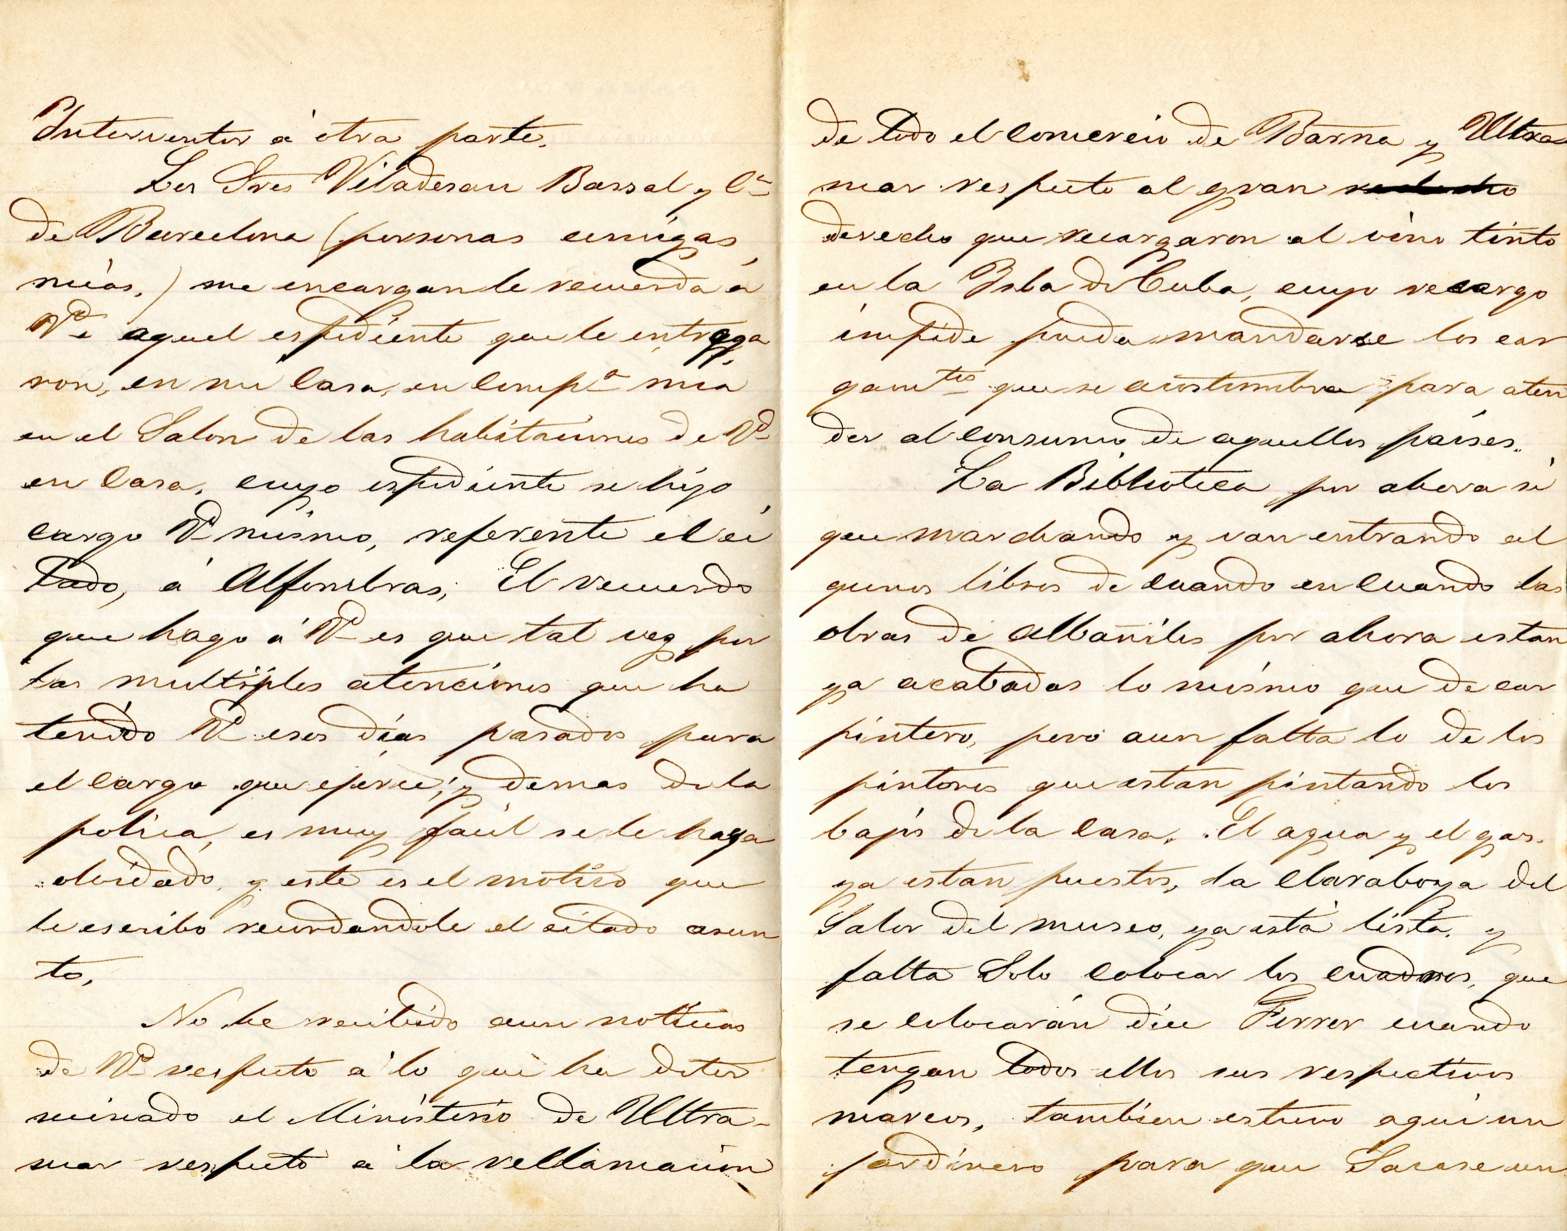 Interventor á otra parte.
Los Sres Viladesau Bassal y Cª
de Barcelona (personas amigas
mias,) me encargan le recuerda á
Vd. aquel espediente que le entrega
ron, en mi Casa, en Compª mia
en el Salon de las habitaciones de Vd
en Casa, cuyo espediente se hizo
cargo Vd mismo, referente el ci
tado, á Alfombras, El recuerdo
que hago á Vd es que tal vez por
las multiples atenciones que ha
tenido Vd esos días pasados para
el cargo que ejerce; y demas de la
policia, es muy facil se le haya
olvidado, y este es el motivo que
le escribo recordandole el citado asun
to,
No he recibido aun noticias
de Vd respecto á lo que ha deter
minado el Ministerio de Ultra-
mar respecto á la rellamacion
de todo el Comercio de Barna y Ultra
mar respecto al gran
derecho que recargaron al vino tinto
en la Isla de Cuba, cuyo recargo
impide pueda mandarse los car
gamtos que se acostumbra para aten
der al consumo de aquellos países.
La Biblioteca por ahora si
gue marchando y van entrando al
gunos libros de cuando en cuando las
obras de Albañiles por ahora estan
ya acabadas lo mismo que de car
pintero, pero aun falta lo de los
pintores que estan pintando los
bajos de la Casa. El agua y el gas
ya estan puestos, la Claraboya del
Salon del museo, ya está lista, y
falta Solo colocar los cuadros, que
se colocarán dice Ferrer cuando
tengan todos ellos sus respectivos
marcos, tambien estuvo aqui un
jardinero para que Sacase un